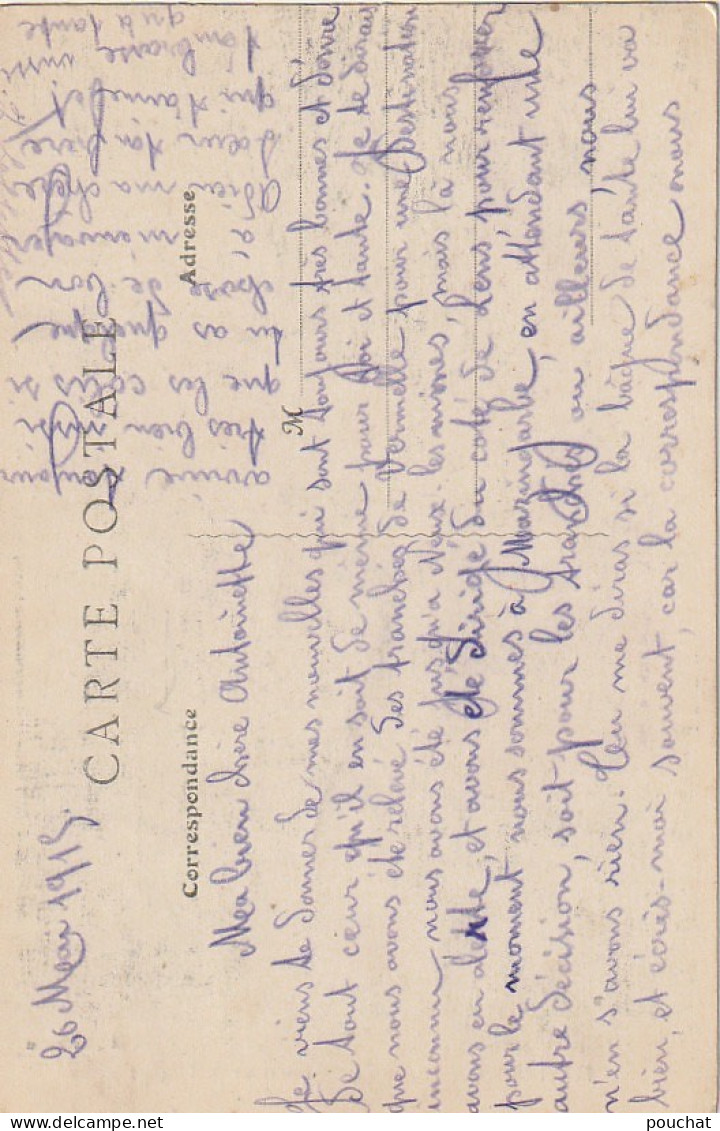 26 Mai 1915.
CARTE POSTALE
Correspondance
Adresse
M
Ma bien chère Antoinette
Je viens te donner de mes nouvelles qui sont toujours très bonnes et désire
de tout cœur qu'il en soit de même pour toi et tante. Je te dirais
que nous avons été relevé des tranchées de Vermelle pour une destination
inconnu nous avons été jusqu'à Nœux-les mines, mais là nous
avons eu alerte, et avons été dirigé du coté de Lens, pour renforcer
pour le moment nous sommes à Mazingarbe, en attendant une
autre décision, soit pour les tranchées ou ailleurs nous
n'en s'avons rien. Tu me diras si la bague de tante lui va
bien, et écris-moi souvent, car la correspondance nous
arrive toujours
très bien aussi
que les colis si
tu as quelque
chose de bon
à m'envoyer
Adieu ma chère
sœur ton frère
qui t'aime et
t'embrasse aussi
qu'à tante
pouchat